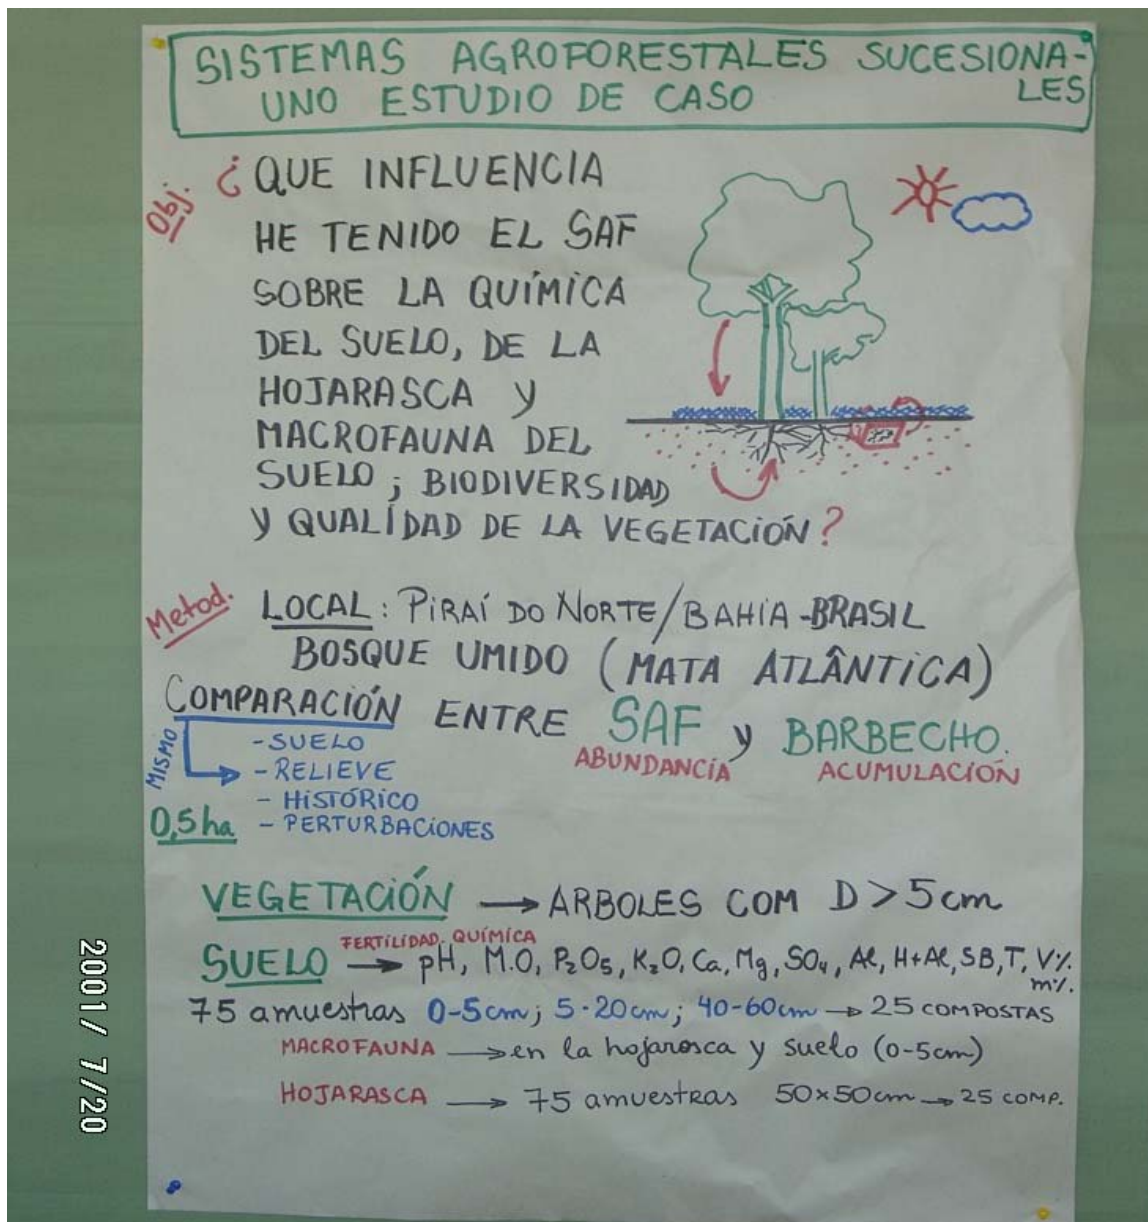 SISTEMAS AGROFORESTALES SUCESIONA-
LES
UNO ESTUDIO DE CASO
Obj.
¿QUE INFLUENCIA
HE TENIDO EL SAF
SOBRE LA QUÍMICA
DEL SUELO, DE LA
HOJARASCA Y
MACROFAUNA DEL
SUELO; BIODIVERSIDAD
Y QUALIDAD DE LA VEGETACIÓN?
Metod.
LOCAL: PIRAÍ DO NORTE/BAHIA-BRASIL
BOSQUE UMIDO (MATA ATLÂNTICA)
COMPARACIÓN ENTRE SAF y BARBECHO.
ABUNDANCÍA ACUMULACIÓN
MISMO
- SUELO
- RELIEVE
- HISTÓRICO
- PERTURBACIONES
0,5ha
VEGETACIÓN → ARBOLES COM D > 5cm
FERTILIDAD QUÍMICA
SUELO → pH, M.O, P₂O₅, K₂O, Ca, Mg, SO₄, Al, H+Al, SB, T, V%.
m%.
75 amuestras 0-5cm; 5-20cm; 40-60cm → 25 COMPOSTAS
MACROFAUNA → en la hojarosca y suelo (0-5cm)
HOJARASCA → 75 amuestras 50x50cm → 25 COMP.
2001/ 7/20